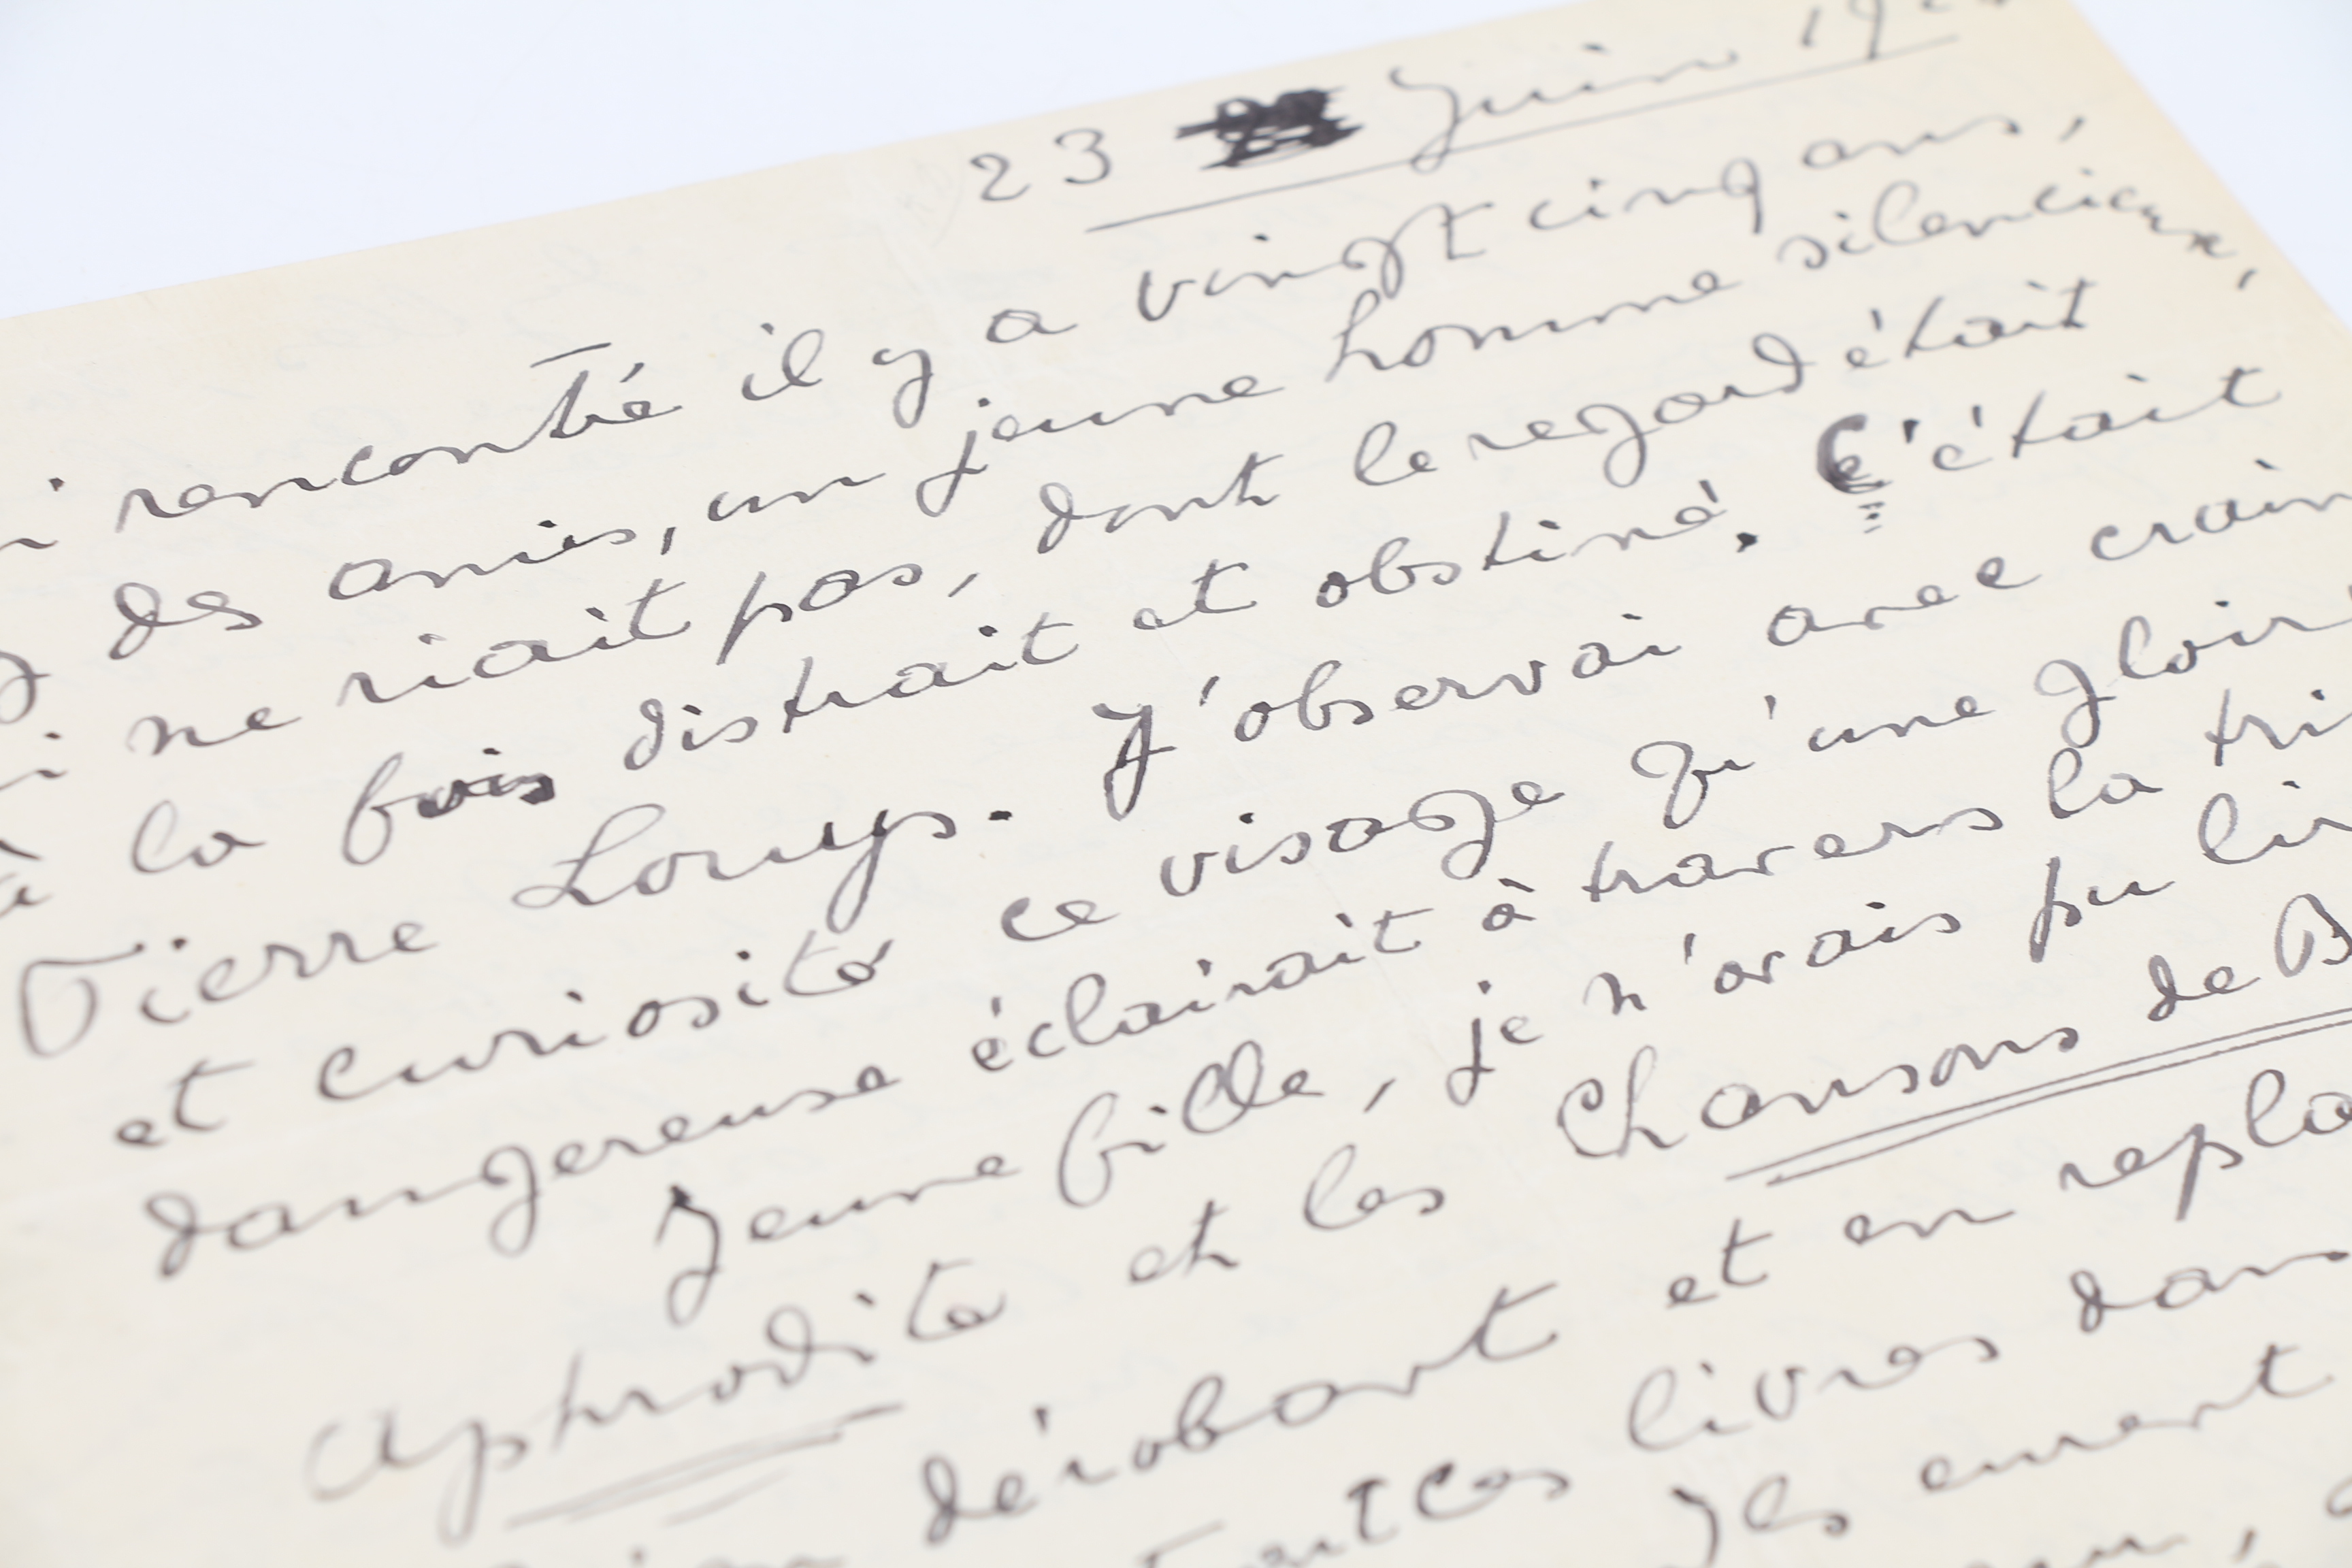 23 Juin 19
rencontré il y a vingt cinq ans,
des amis, un jeune homme silencieux,
ne riait pas, dont le regard était
à la fois distrait et obstiné. C'était
Pierre Louys. J'observai avec crain
et curiosité ce visage qu'une gloir
dangereuse éclairait à travers la tri
Jeune fille, je n'avais pu lir
Aphrodite et les Chansons de B
dérobant et en repla
livres dan
Ils eurent